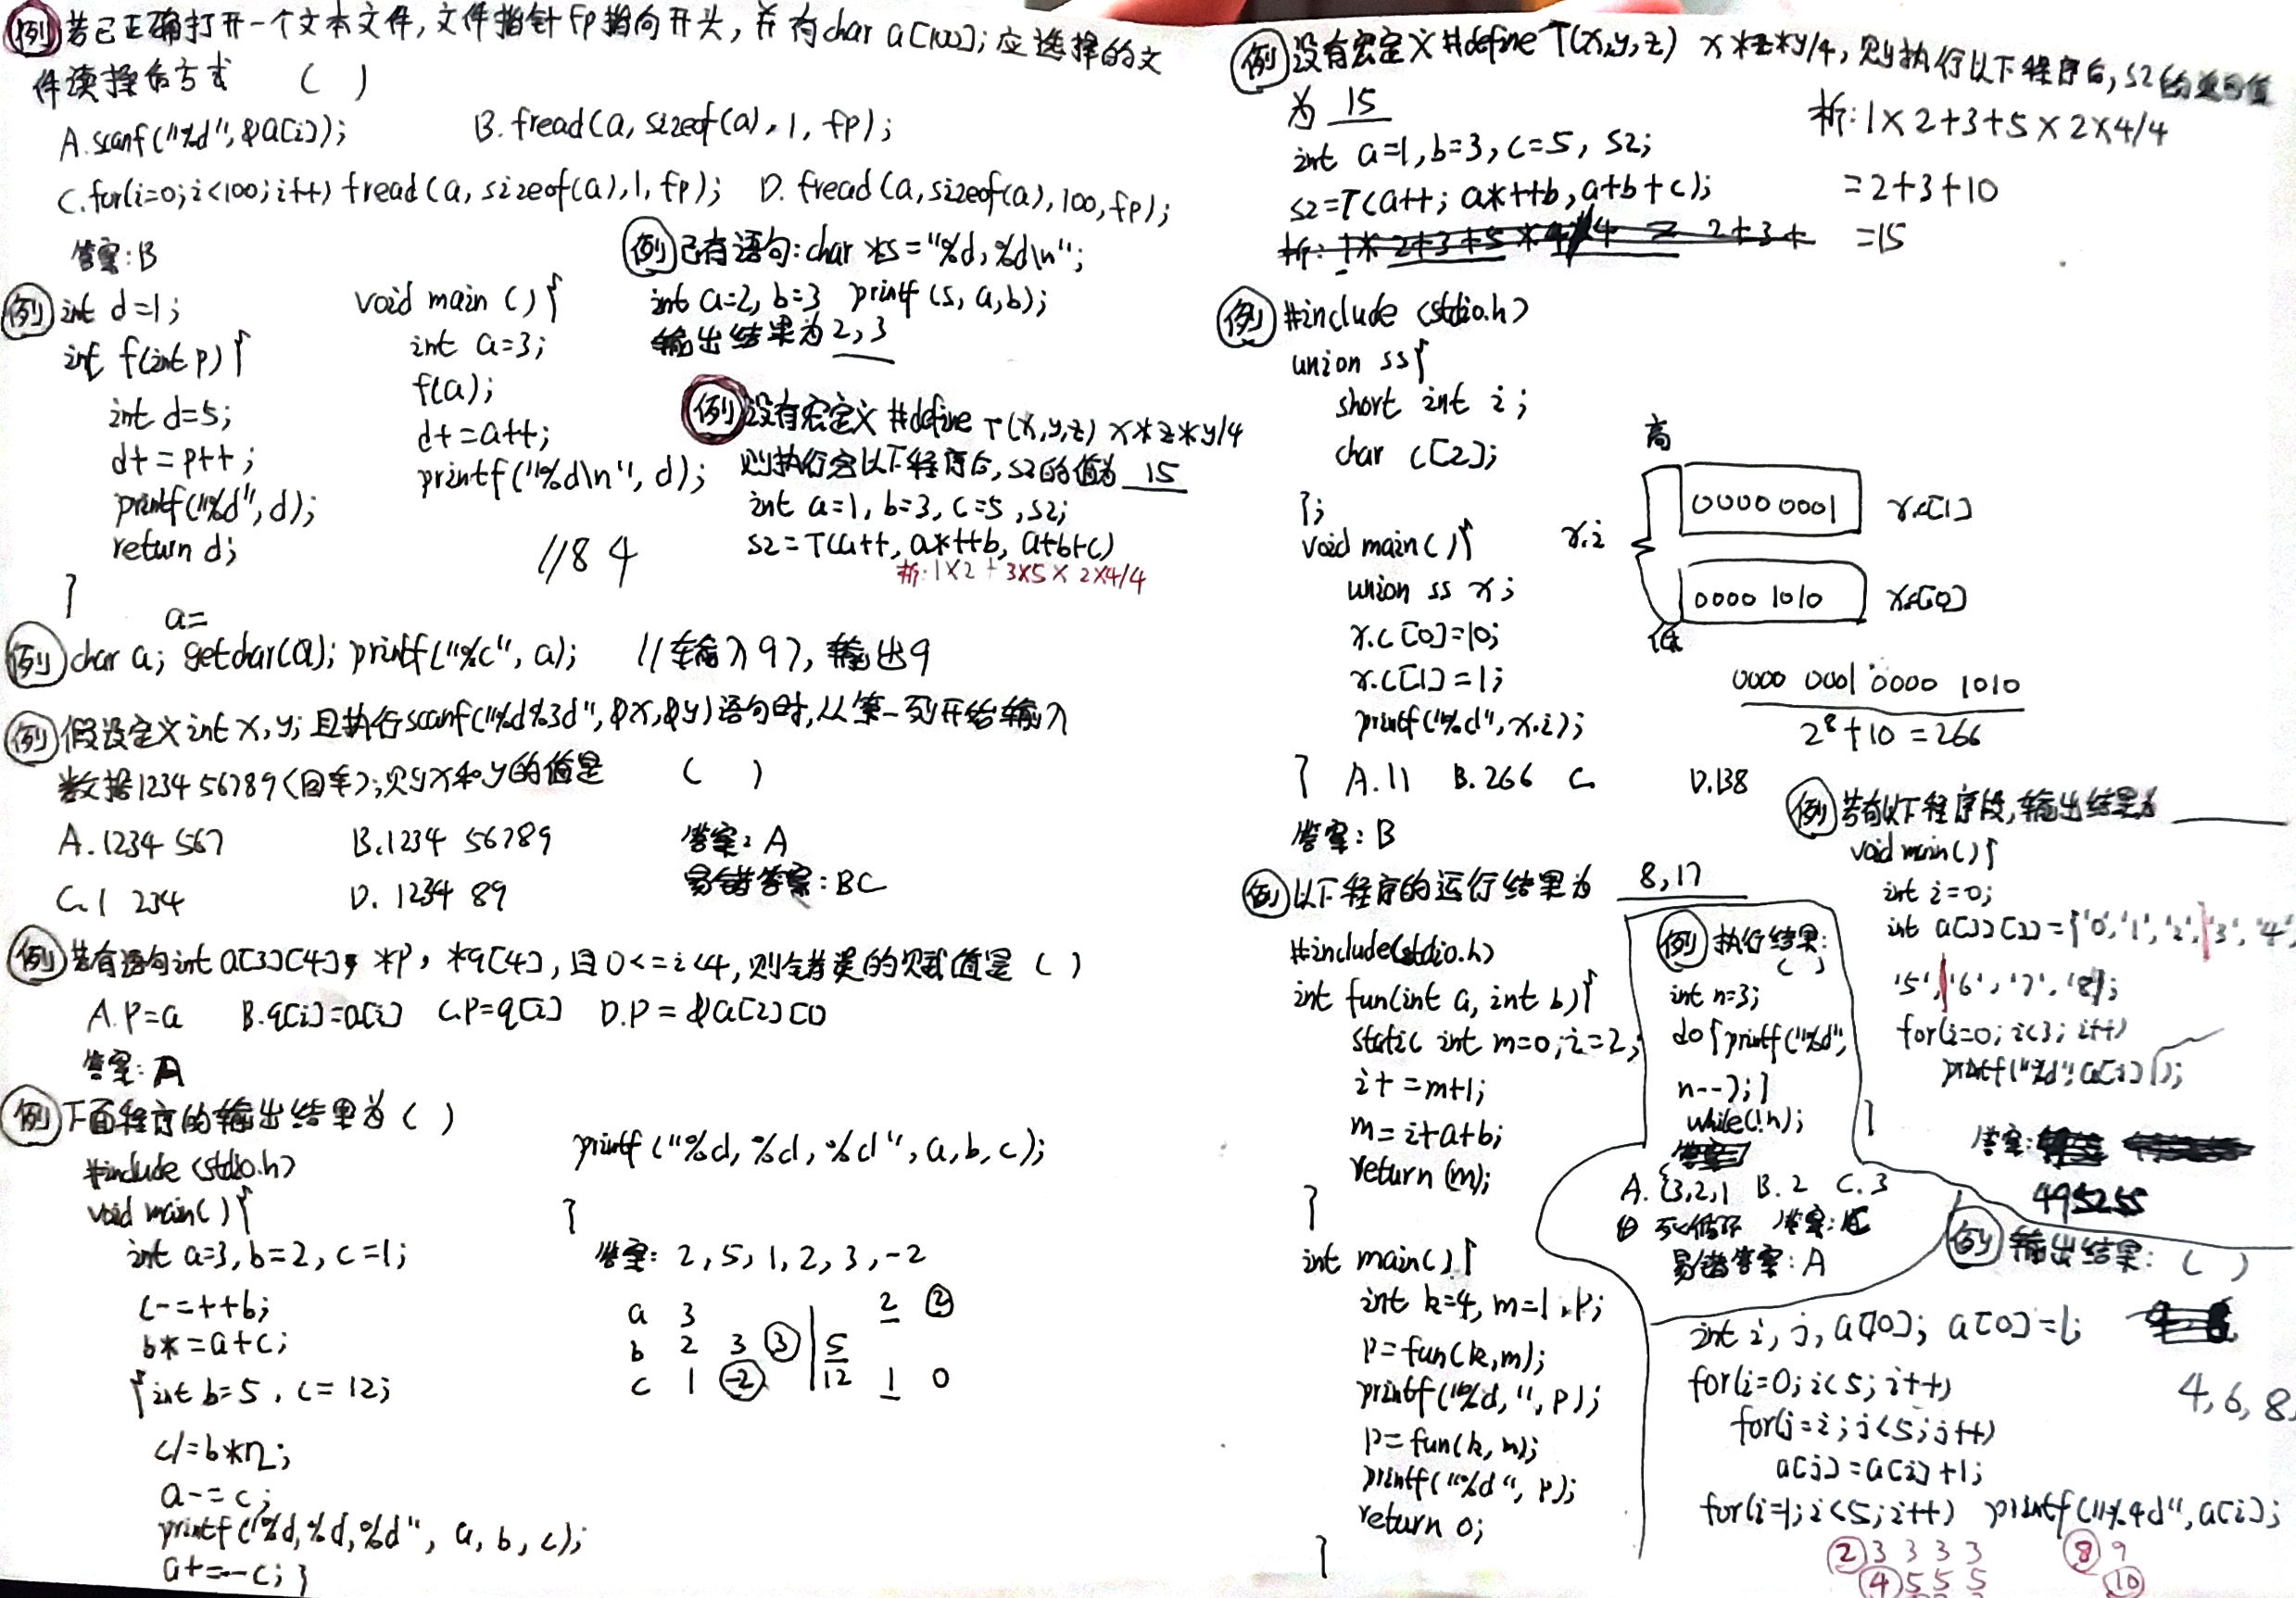 例 若已正确打开一个文本文件,文件指针fp指向开头,并有char a[100];应选择的文
件读操作方式 ( )
A.scanf("%d",&a[i]); B.fread(a,sizeof(a),1,fp);
C.for(i=0;i<100;i++) fread(a,sizeof(a),1,fp); D.fread(a,sizeof(a),100,fp);
答案:B
例 已有语句:char *s="%d,%d\n";
int a=2,b=3 printf(s,a,b);
输出结果为2,3
例 int d=1;
int f(int p){
int d=5;
d+=p++;
printf("%d",d);
return d;
}
void main(){
int a=3;
f(a);
d+=a++;
printf("%d\n",d);
//8 4
例 设有宏定义 #define T(x,y,z) x*z*y/4
则执行完以下程序后,s2的值为 15
int a=1,b=3,c=5,s2;
s2=T(a++,a*++b,a+b+c)
析:1×2+3×5×2×4/4
a=
例 char a; getchar(a); printf("%c",a); //输入97,输出9
例 假设定义int x,y;且执行scanf("%d%3d",&x,&y)语句时,从第一列开始输入
数据1234 56789(回车);则x和y的值是 ( )
A.1234 567 B.1234 56789
C.1 234 D.1234 89
答案:A
易错答案:BC
例 若有语句int a[3][4],*p,*q[4],且0<=i<4,则错误的赋值是( )
A.p=a B.q[i]=a[i] C.p=q[i] D.p=&a[2][0]
答案:A
例 下面程序的输出结果为( )
#include<stdio.h>
void main(){
int a=3,b=2,c=1;
c-=++b;
b*=a+c;
{int b=5,c=12;
c/=b*2;
a-=c;
printf("%d,%d,%d",a,b,c);
a+=--c;}
printf("%d,%d,%d",a,b,c);
}
答案:2,5,1,2,3,-2
a 3 2 2
b 2 3 3 5
c 1 -2 12 1 0
例 设有宏定义#define T(x,y,z) x*z*y/4,则执行以下程序后,s2
为 15
int a=1,b=3,c=5,s2;
s2=T(a++;a*++b,a+b+c);
析:1×2+3+5×2×4/4
=2+3+10
=15
例 #include<stdio.h>
union ss{
short int i;
char c[2];
};
void main(){
union ss x;
x.c[0]=10;
x.c[1]=1;
printf("%d",x.i);
}
高
x.i
0000 0001 x.c[1]
0000 1010 x.c[0]
低
0000 0001 0000 1010
2⁸+10=266
A.11 B.266 C. D.138
答案:B
例 以下程序的运行结果为 8,17
#include<stdio.h>
int fun(int a,int b){
static int m=0,i=2;
i+=m+1;
m=i+a+b;
return(m);
}
int main(){
int k=4,m=1,p;
p=fun(k,m);
printf("%d,",p);
p=fun(k,m);
printf("%d",p);
return 0;
}
例 执行结果:
( )
int n=3;
do{printf("%d",
n--);}
while(!n);
A.3,2,1 B.2 C.3
D 死循环 答案:C
易错答案:A
例 若有以下程序段,输出结果为
void main(){
int i=0;
int a[3][3]={'0','1','2','3','4',
'5','6','7','8'};
for(i=0;i<3;i++)
printf("%d",a[i][i]);
}
答案:
495255
例 输出结果:( )
int i,j,a[10]; a[0]=1;
for(i=0;i<5;i++)
for(j=i;j<5;j++)
a[j]=a[i]+1;
for(i=1;i<5;i++) printf("%4d",a[i]);
4,6,8,
2 3 3 3 3 8 9
4 5 5 5 10